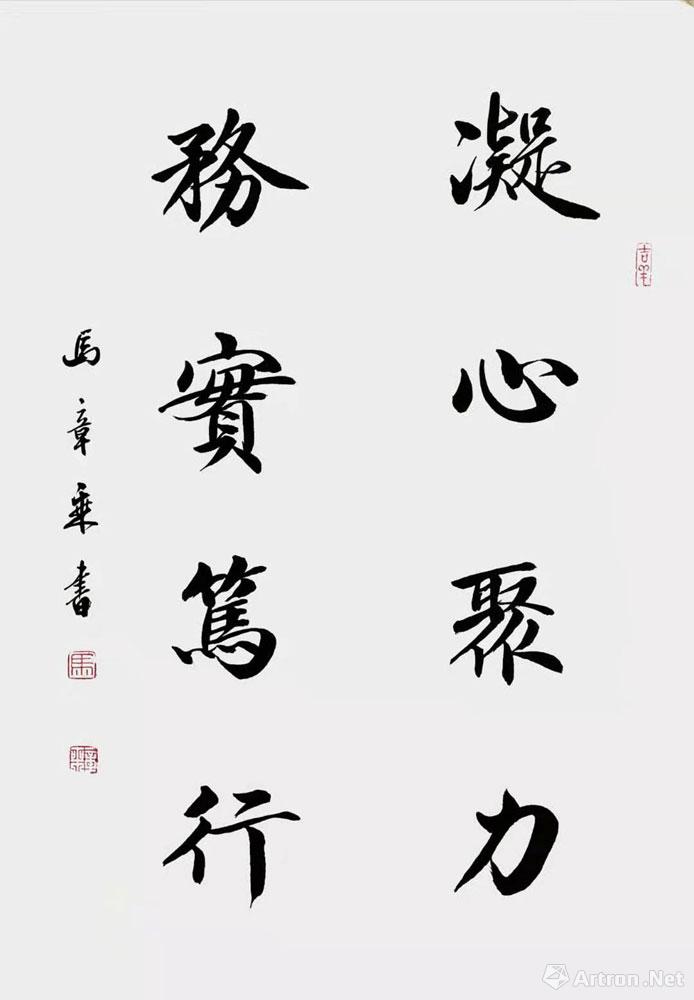 凝心聚力
務實篤行
馬章乘書
吉羊
馬
Artron.Net